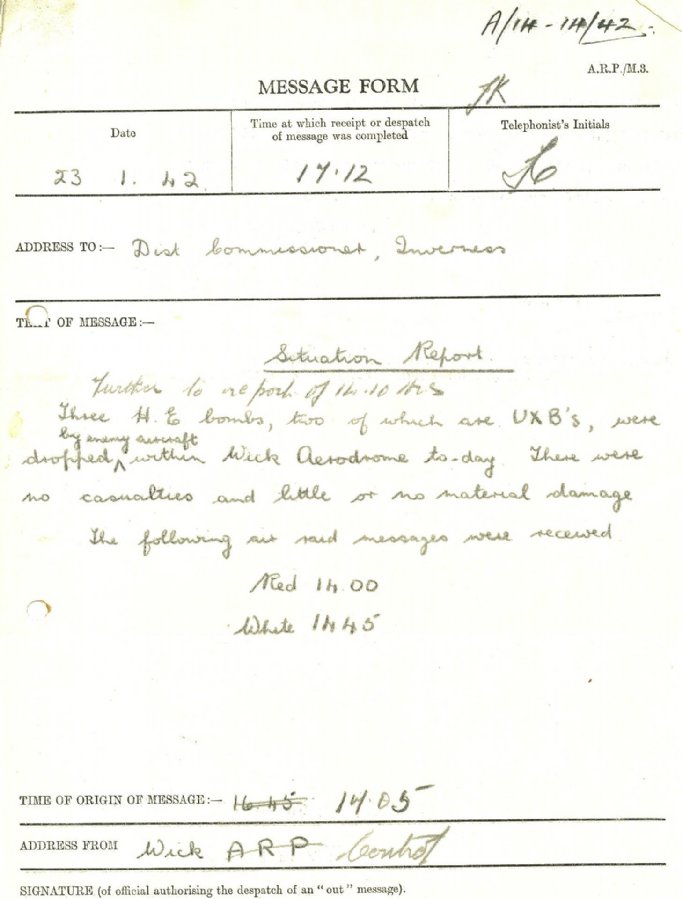 A/14 - 14/42.
A.R.P./M.3.
MESSAGE FORM
JK
Date
Time at which receipt or despatch
of message was completed
Telephonist's Initials
23 1. 42
17.12
ADDRESS TO:— Dist Commissioner, Inverness
TEXT OF MESSAGE:—
Situation Report.
Further to report of 14.10 hrs
Three H.E bombs, two of which are UXB's, were
by enemy aircraft
dropped ^ within Wick Aerodrome to-day. There were
no casualties and little or no material damage
The following air raid messages were received
Red 14.00
White 14 45
TIME OF ORIGIN OF MESSAGE:— 16.45 17.05
ADDRESS FROM Wick ARP Control
SIGNATURE (of official authorising the despatch of an "out" message).